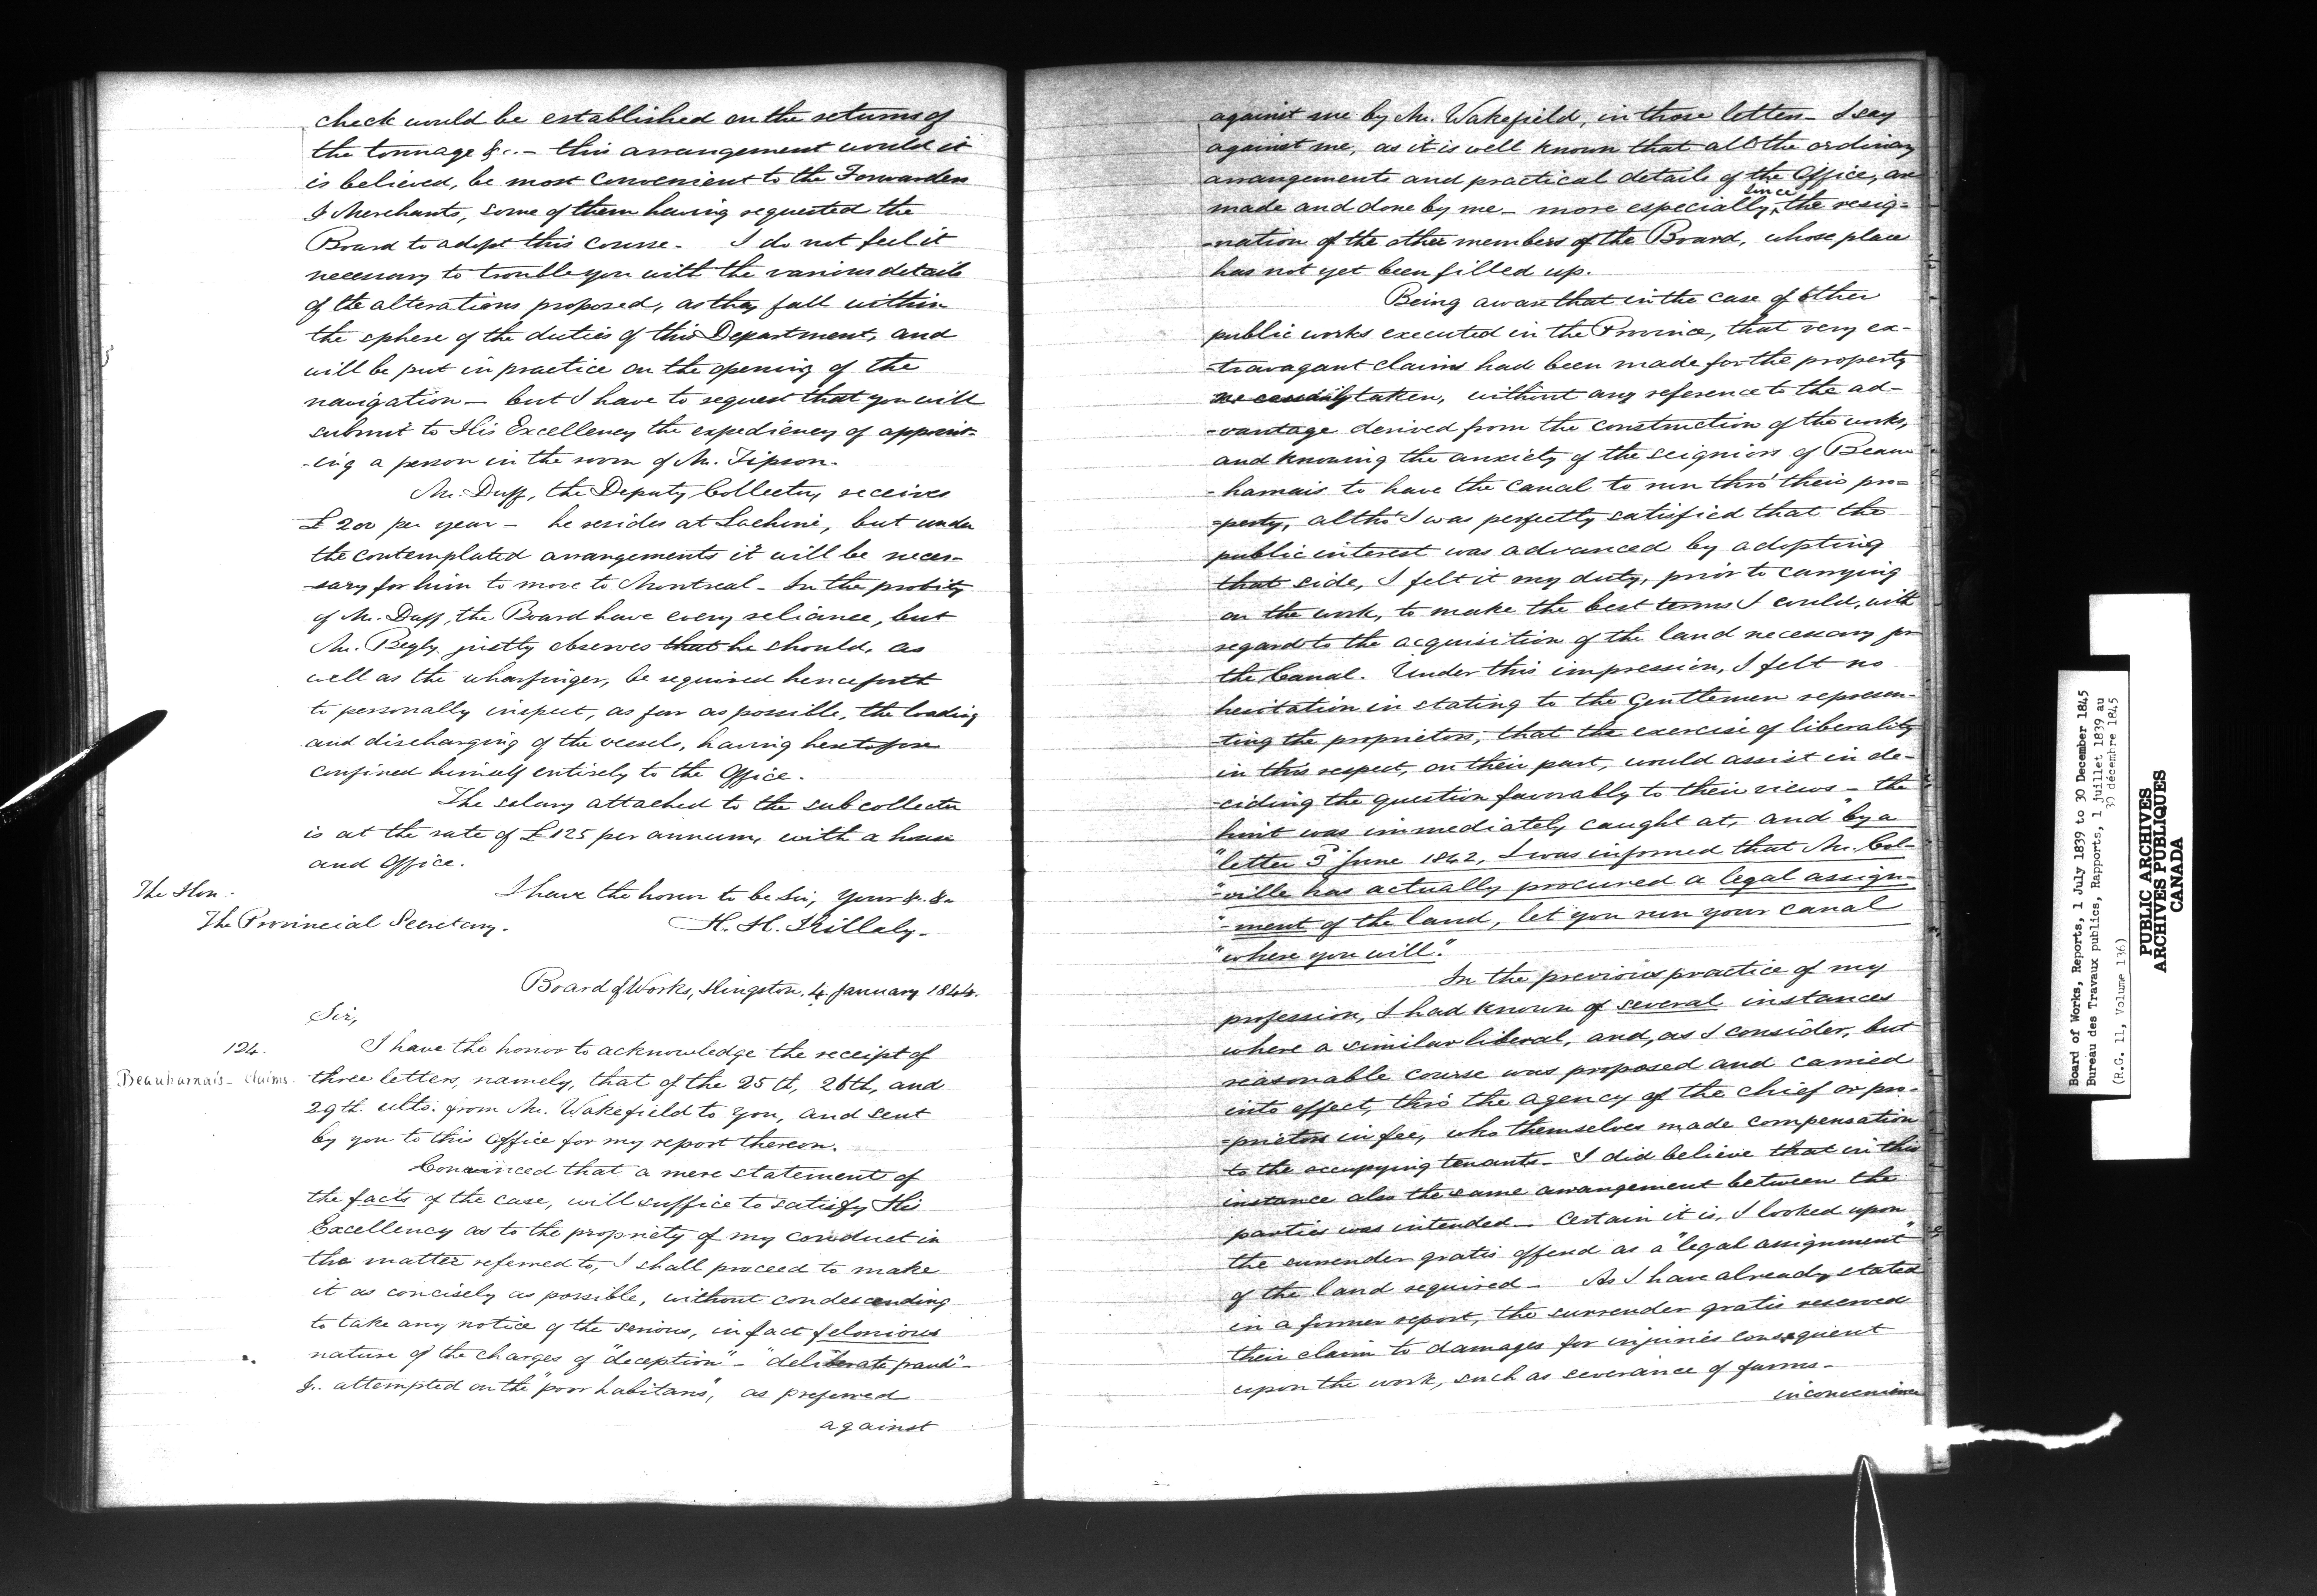 check would be established on the returns of
the tonnage &c. - this arrangement would it
is believed, be most convenient to the Forwarders
& Merchants, some of them having requested the
Board to adopt this course. I do not feel it
necessary to trouble you with the various details
of the alterations proposed, as they fall within
the sphere of the duties of this Department, and
will be put in practice on the opening of the
navigation - but I have to request that you will
submit to His Excellency the expediency of appoint-
-ing a person in the room of Mr. Tipson.
Mr. Duff, the Deputy Collector, receives
£200 per year - he resides at Lachine, but under
the contemplated arrangements it will be neces-
-sary for him to move to Montreal - In the probity
of Mr. Duff, the Board have every reliance, but
Mr. Begly justly observes that he should, as
well as the wharfinger, be required henceforth
to personally inspect, as far as possible, the loading
and discharging of the vessels, having heretofore
confined himself entirely to the Office.
The salary attached to the sub collector
is at the rate of £125 per annum, with a house
and Office.
I have the honor to be Sir, Your &c. &c
The Hon:
The Provincial Secretary.
H. H. Killaly.
Board of Works, Kingston, 4 January 1844.
Sir,
124.
Beauharnais - claims.
I have the honor to acknowledge the receipt of
three letters, namely, that of the 25th, 26th, and
29th ulto. from Mr. Wakefield to you, and sent
by you to this Office for my report thereon.
Convinced that a mere statement of
the facts of the case, will suffice to satisfy His
Excellency as to the propriety of my conduct in
the matter referred to, I shall proceed to make
it as concisely as possible, without condescending
to take any notice of the serious, in fact felonious
nature of the charges of "deception" - "deliberate fraud" -
&c. attempted on the "poor habitans", as preferred
against
against me by Mr. Wakefield, in those letters - I say
against me, as it is well known that all the ordinary
arrangements and practical details of the Office, are
since
made and done by me - more especially, the resig=
-nation of the other members of the Board, whose place
has not yet been filled up.
Being aware that in the case of other
public works executed in the Province, that very ex-
-travagant claims had been made for the property
necessarily taken, without any reference to the ad-
-vantage derived from the construction of the works,
and knowing the anxiety of the seigniors of Beau-
-harnais to have the canal to run thro' their pro=
=perty, altho' I was perfectly satisfied that the
public interest was advanced by adopting
that side, I felt it my duty, prior to carrying
on the work, to make the best terms I could, with
regard to the acquisition of the land necessary for
the Canal. Under this impression, I felt no
hesitation in stating to the Gentlemen represen-
-ting the proprietors, that the exercise of liberality
in this respect, on their part, would assist in de-
-ciding the question favorably to their views - the
hint was immediately caught at, and "by a
"letter 3d June 1842, I was informed that Mr. Col-
"-ville has actually procured a legal assign-
"-ment of the land, let you run your canal
"where you will".
In the previous practice of my
profession, I had known of several instances
where a similar liberal, and, as I consider, but
reasonable course was proposed and carried
into effect, thro' the agency of the chief or pro-
=prietors in fee, who themselves made compensation
to the occupying tenants - I did believe that in this
instance also the same arrangement between the
parties was intended - Certain it is, I looked upon
the surrender gratis offered as a "legal assignment"
of the land required - As I have already stated
in a former report, the surrender gratis reserved
their claim to damages for injuries consequent
upon the work, such as severance of farms -
inconvenience
Board of Works, Reports, 1 July 1839 to 30 December 1845
Bureau des Travaux publics, Rapports, 1 juillet 1839 au
30 décembre 1845
(R.G. 11, Volume 136)
PUBLIC ARCHIVES
ARCHIVES PUBLIQUES
CANADA